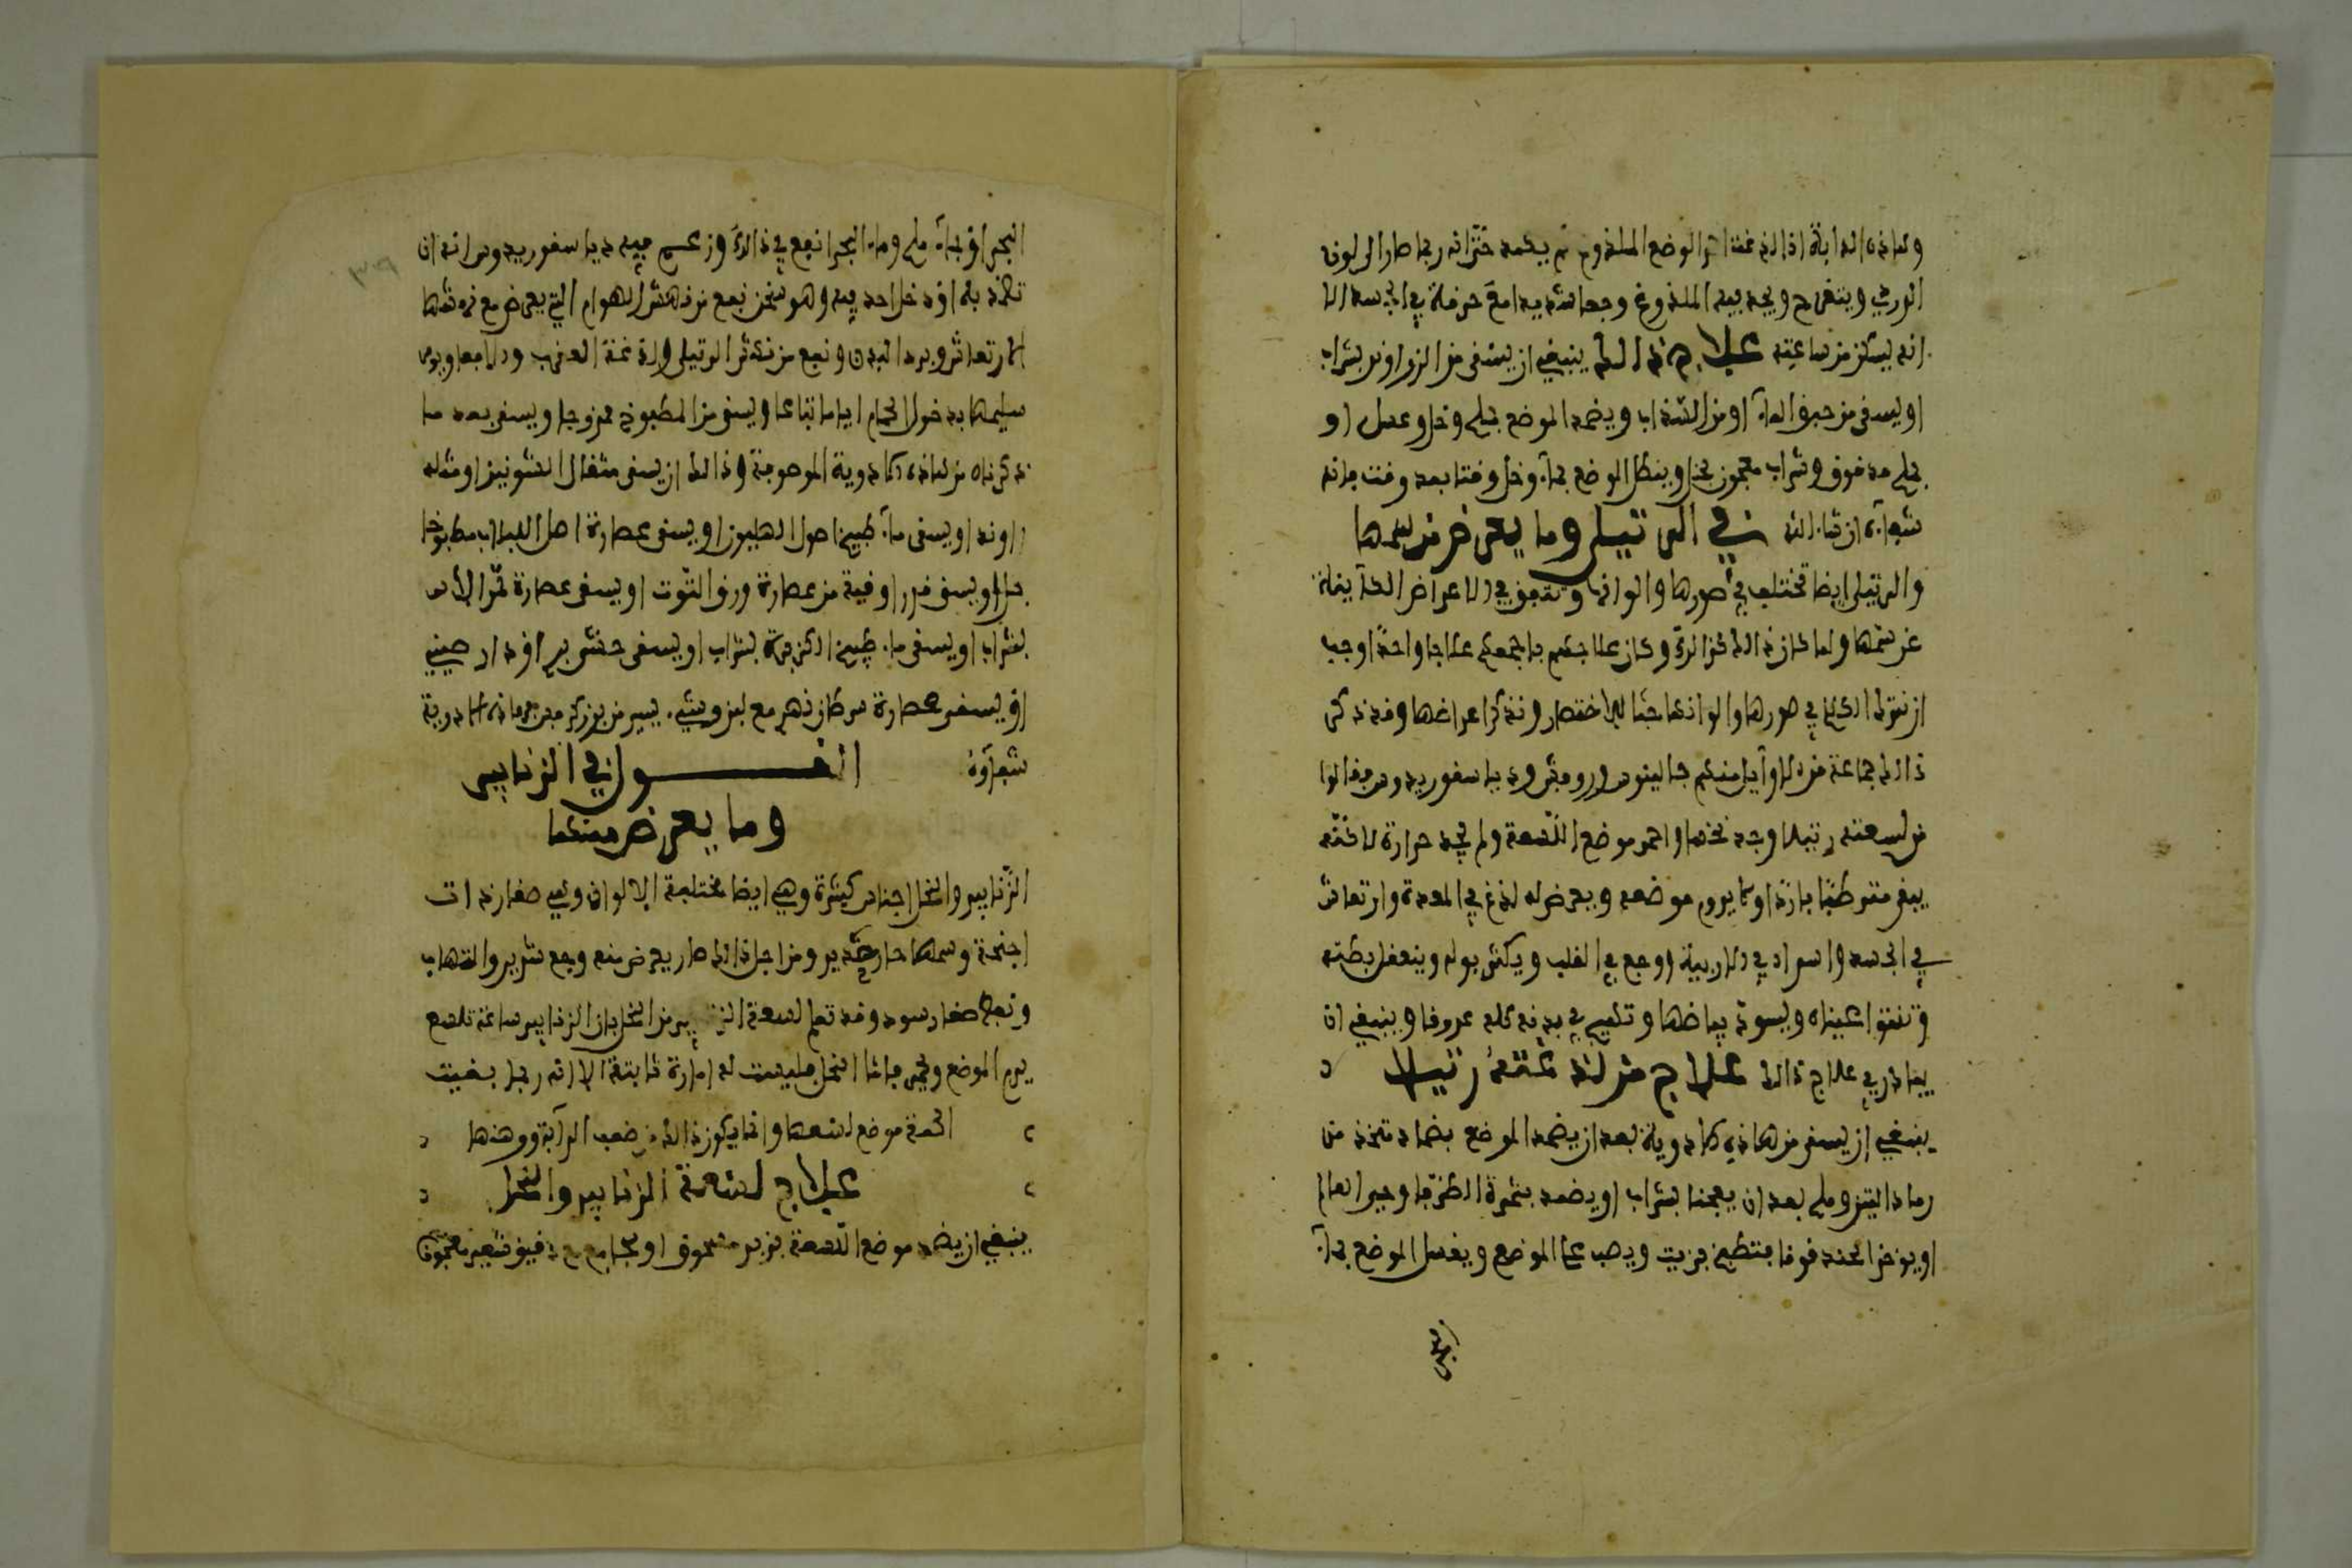 وهاذه الدابة اذا لذغت الموضع الملذوغ ثم يكمد حتى انه ربما صار الى لون
الورس ويتقرح ويجد فيه الملذوغ وجعا شديدا مع حرقة في الجسد الا
انه يسكن من ساعته علاج ذالك ينبغي ان يسقى من الزراوند بشراب
او يسقى من حبق الماء او من السذاب ويضمد الموضع بملح وخل وعسل او
بملح مدقوق وشراب معجون بخل وينطل الموضع بماء وخل وقتا بعد وقت فانه
شفاؤه ان شاء الله في الرتيلى وما يعرض من لسعها
والرتيلى ايضا تختلف في صورها والوانها وتتفق في الاعراض الكاينة
عن سمها ولما كان ذالك كذالك وكان علاجهم باجمعهم علاجا واحدا وجب
ان نترك الكلام في صورها والوانها حبا للاختصار ونذكر اعراضها وقد ذكر
ذالك جماعة من الاوايل منهم جالينوس وروفس وديا سقوريدوس فقالوا
من لسعته رتيلا وجد نخسا واحمر موضع اللسعة ولم يجد حرارة لاكنه
يبقى مترطبا باردا وكا يروم موضعه ويعرض له لذغ في المعدة وارتعاش
في الجسد واسواد في الاربية ووجع في القلب ويكثر بوله وينعقل بطنه
وتنتو عيناه ويسود بياضها وتهيج في بدنه كله عروقا وينبغي ان
يبادر في علاج ذالك علاج من لذغته رتيلا
ينبغي ان يسقى من هاذه الادوية بعد ان يضمد الموضع بضماد تتخذ من
رماد التين وملح بعد ان يعجنا بشراب او يضمد بثمرة الطرفا وجير العالم
او يوخذ الحندقوقا فتطبخ بزيت ويصب على الموضع ويغسل الموضع بماء
البحر
البحر او بماء ملح وماء البحر انفع في ذالك وزعم فيه ديا سقوريدوس انه ان
تكمد به او دخل احد فيه وهو سخن نفع من نهش الهوام التي يعرض مع نهشها
الارتعاش وبرد البدن ونفع من نهش الرتيلى ولذغة العقرب والافعا ويومر
سليمها بدخول الحمام اياما تباعا ويسقى من المطبوخ ممزوجا ويسقى بعد ما
ذكرناه من هاذه الادوية الموصوفة وذالك ان يسقى مثقال الشونيز او مثله
زراوند او يسقى ماء طبيخ اصول الهليون او يسقى عصارة اصل اللبلاب مطبوخا
بخل او يسقى قدر اوقية من عصارة ورق التوت او يسقى عصارة ثمر الاس
بشراب او يسقى ماء طبيخ الكزبرة بشراب او يسقى
او يسقى عصارة سرطان نهر مع لبن وشيء يسير من بزر كرفس فهاذه الادوية
شفاؤه القول في الزنابير
وما يعرض منها
الزنابير والنحل اجناس كثيرة وهي ايضا مختلفة الالوان وهي صغار ذات
اجنحة وسمها حار شديد ومن اجل ذالك صار يعرض منه وجع شديد والتهاب
ونفط صغار سود وقد تعلم لسعة الزنابير من النحل بان الزنابير ساعة تلسع
يرم الموضع ويحمر فاما النحل فليست له امارة ثابتة الا انه ربما بقيت
الحمة موضع لسعها وانما يكون ذالك من ضعف الدابة ووهنها
علاج لسعة الزنابير والنحل
ينبغي ان يضمد موضع اللسعة بزبر مسحوق او مع دقيق شعير معجون